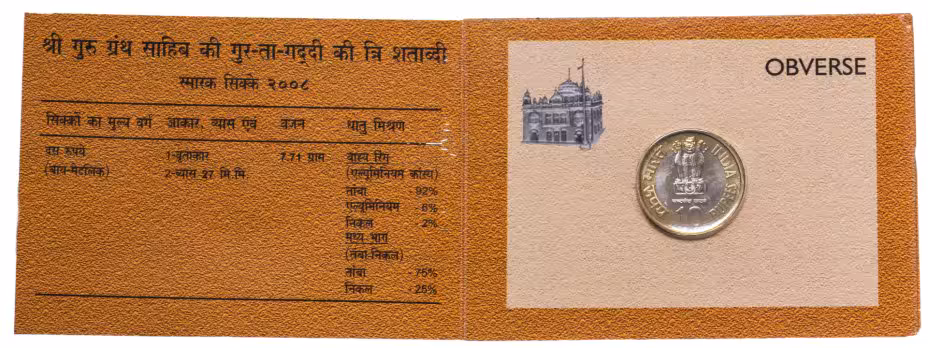 श्री गुरु ग्रंथ साहिब की गुर-ता-गद्दी की त्रि शताब्दी
स्मारक सिक्के २००८
सिक्कों का मुल्य वर्ग आकार, व्यास एवं वजन धातु मिश्रण
दस रुपये 1-वृताकार 7.71 ग्राम वाह्य रिंग
(बाय-मेटलिक) 2-व्यास 27 मि.मि. (एल्यूमिनियम कांस्य)
तांबा - 92%
एल्यूमिनियम - 6%
निकल - 2%
मध्य भाग
(तांबा-निकल)
तांबा - 75%
निकल - 25%
OBVERSE
भारत INDIA
सत्यमेव जयते
10